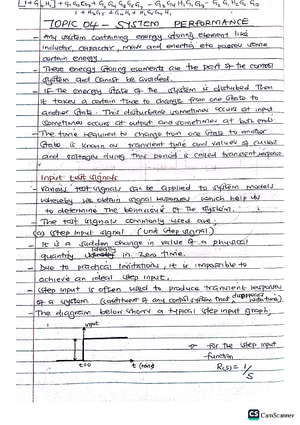 TOPIC 04 - SYSTEM PERFORMANCE
- Any system containing energy storing element like
inductor, capacitor, mass and inertia etc possess some
certain energy.
- These energy storing elements are the part of the control
system and cannot be avoided.
- If the energy state of the system is disturbed then
it takes a certain time to change from one state to
another state. This disturbance sometimes occurs at input
sometimes occurs at output and sometimes at both ends.
- The time required to change from one state to another
state is known as transient time and values of current
and voltages during this period is called transient response.
Input test signals
- Various test signals can be applied to system models
whereby we obtain signal responses which help us
to determine the behaviour of the system.
- The test signals commonly used are;
(a) Step input signal. (Unit step signal)
- It is a sudden change in value of a physical
quantity ideally in zero time.
- Due to practical limitations, it is impossible to
achieve an ideal step input.
- Step input is often used to produce transient responses
of a system (constituent of any control system that disappears with time)
- The diagram below shows a typical step input graph;
input
t=0
t (min)
For the step input
function
R(s) = 1/s
CS CamScanner